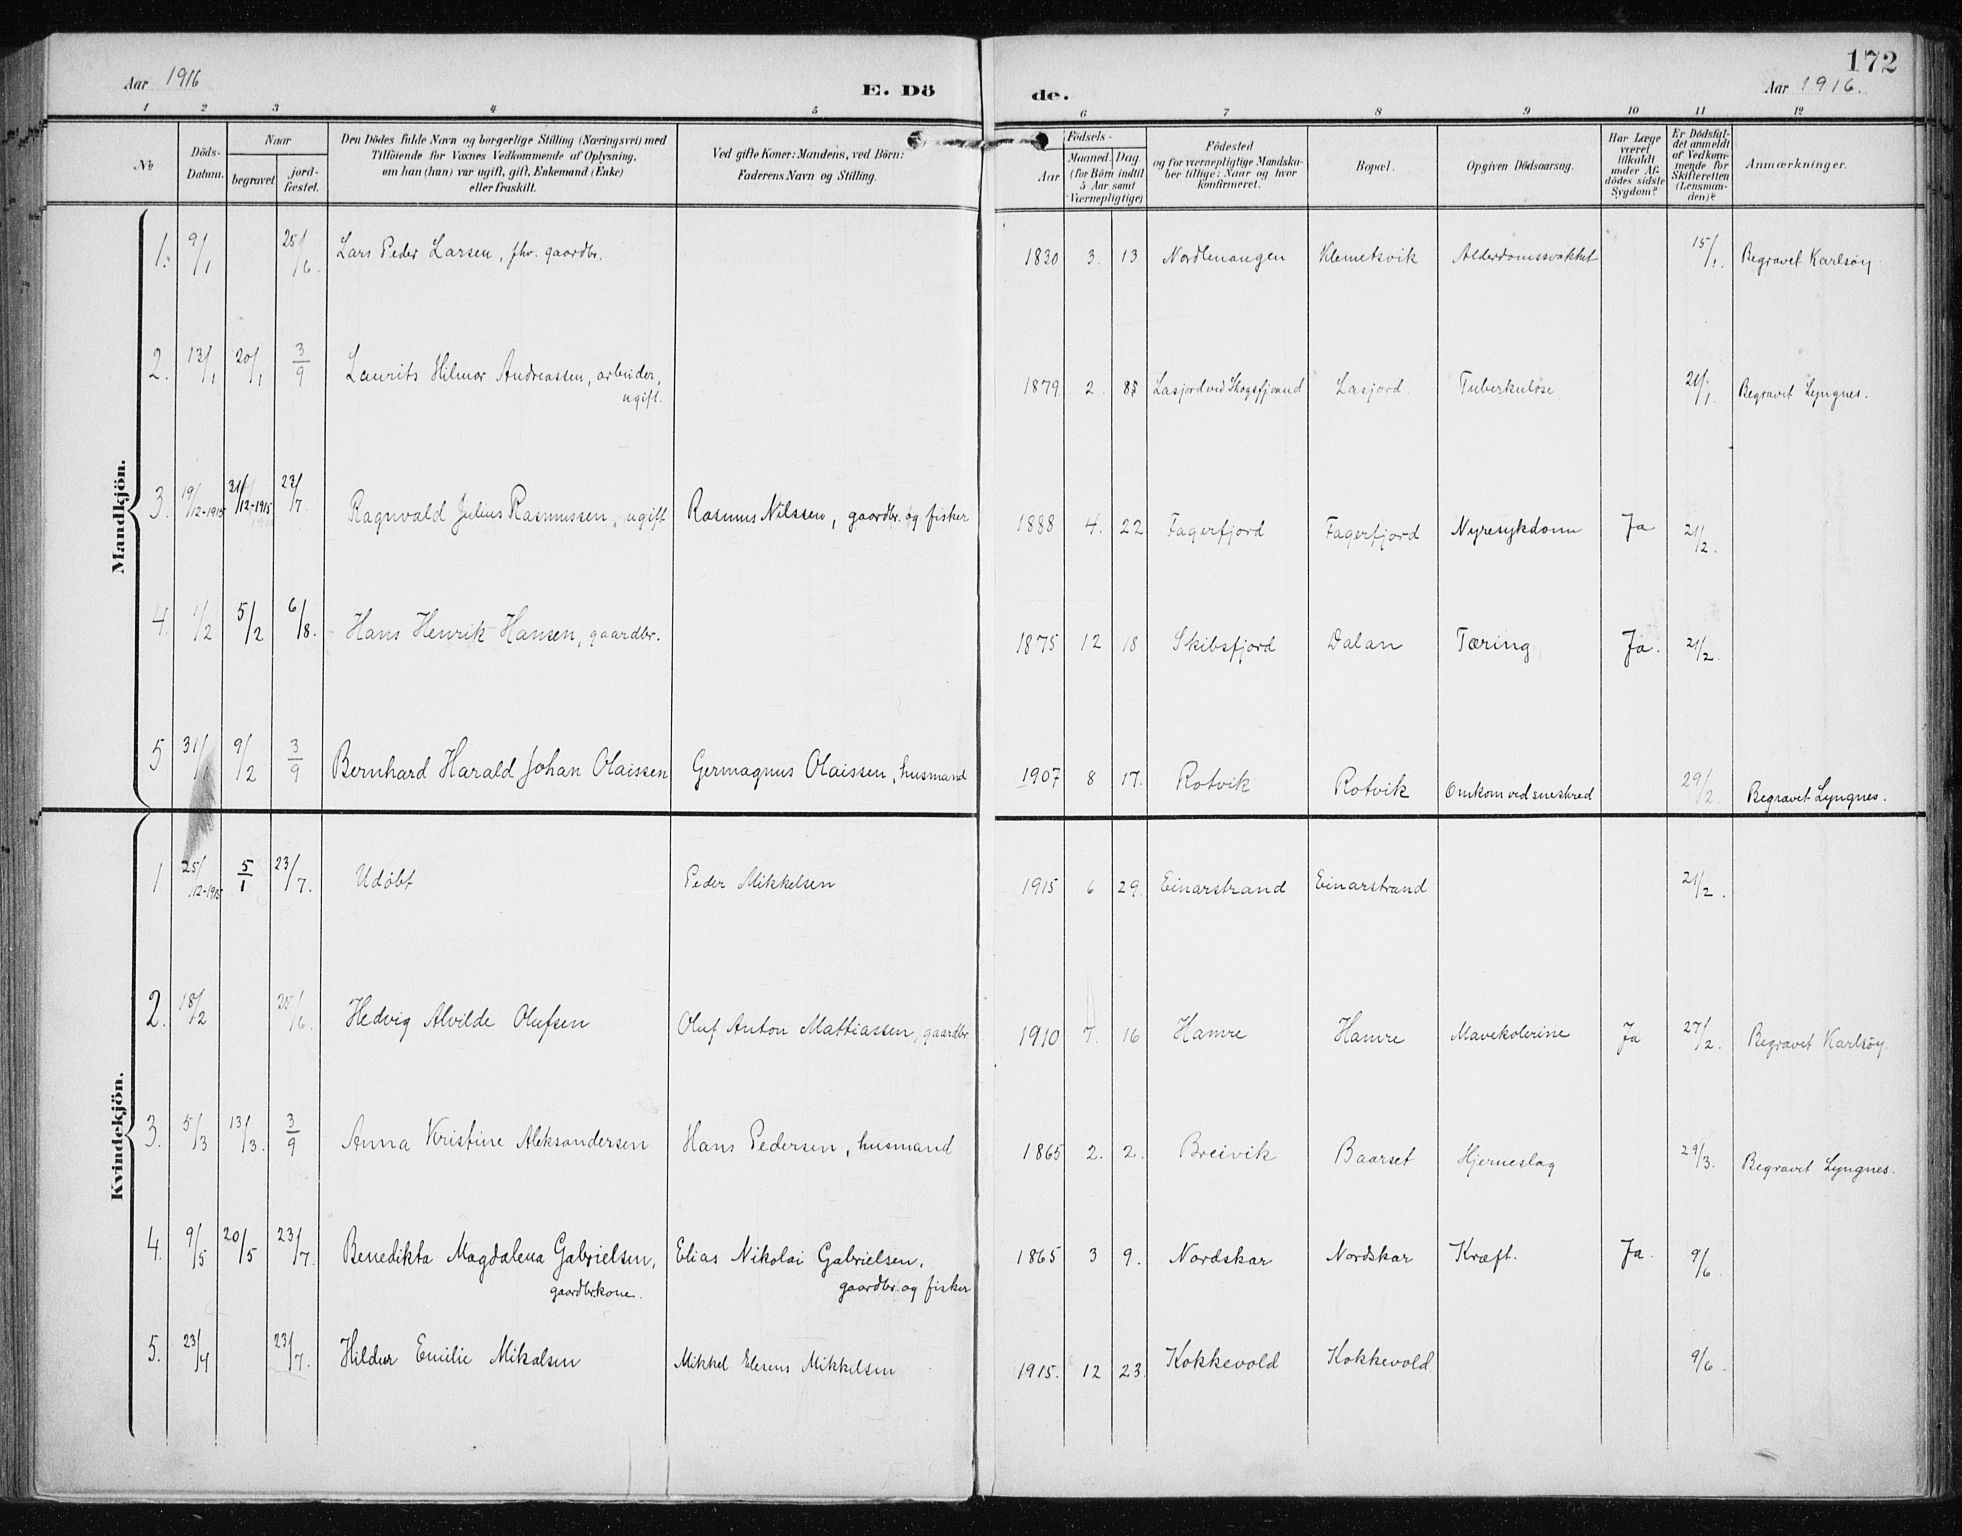 172
Aar 1916
E. Dö
de.
Aar 1916.
1 2 3 4 5 6 7 8 9 10 11 12
No
Döds-
Datum.
Naar
begravet
jord-
fæstet.
Den Dödes fulde Navn og borgerlige Stilling (Næringsvei) med
Tilföiende for Voxnes Vedkommende af Oplysning,
om han (hun) var ugift, gift, Enkemand (Enke)
eller fraskilt.
Ved gifte Koner: Mandens, ved Börn:
Faderens Navn og Stilling.
Födsels-
Aar
Maaned. Dag
(for Börn indtil
5 Aar samt
Værnepligtige)
Födested
og for værnepligtige Mandska-
ber tillige: Naar og hvor
konfirmeret.
Bopæl.
Opgiven Dödsaarsag.
Har Læge
været
tilkaldt
under Af-
dödes sidste
Sygdom?
Er Dödsfal-
det anmeldt
af Vedkom-
mende for
Skifteretten
(Lensman-
den)?
Anmærkninger.
Mandkjön.
1. 9/1 25/6. Lars Peder Larsen, fhv. gaardbr. 1830 3. 13 Nordlenangen Klemetsvik Alderdomssvakhet 15/1. Begravet Karlsöy.
2. 13/1 20/1 3/9 Laurits Hilmar Andreassen, arbeider, 1879 2. Lasjord. Tuberkulose Begravet Lyngnes.
ugift.
3. 19/12-1915 31/12-1915 23/7. Ragnvald Julius Rasmussen, ugift Rasmus Nilssen, gaardbr. og fisker 1888 4. 22 Fagerfjord Fagerfjord Nyresykdom Ja 21/2.
4. 1/2 5/2 6/8. Hans Henrik Hansen, gaardbr. 1875 12 18 Skibsfjord Dalan Tæring Ja. 21/2.
5 31/1 9/2 3/9 Bernhard Harald Johan Olaissen Germagnus Olaissen, husmand 1907 8 17. Rotvik Rotvik Omkom ved sneskred 29/2. Begravet Lyngnes.
Kvindekjön.
1 25/12-1915 5/1 23/7. Udöbt Peder Mikkelsen 1915 6 29. Einarstrand Einarstrand 21/2.
2. 18/2 25/6. Hedvig Alvilde Olufsen Oluf Anton Mattiassen, gaardbr 1910 7. 16 Hamre Hamre Mavekolerine Ja 27/2. Begravet Karlsöy.
3. 5/3 13/3. 3/9 Anna Kristine Aleksandersen Hans Pedersen, husmand 1865 2. 2. Breivik Baarset Hjerneslag 29/3. Begravet Lyngnes.
4. 9/5 20/5 23/7. Benedikta Magdalena Gabrielsen, Elias Nikolai Gabrielsen, 1865 3 9. Nordskar Nordskar Kræft. Ja. 9/6.
gaardbr.kone. gaardbr. og fisker
5. 23/4 23/7. Hildur Emilie Mikalsen Mikkel Mikkelsen 1915. 12 23. Kokkevold Kokkevold 9/6.